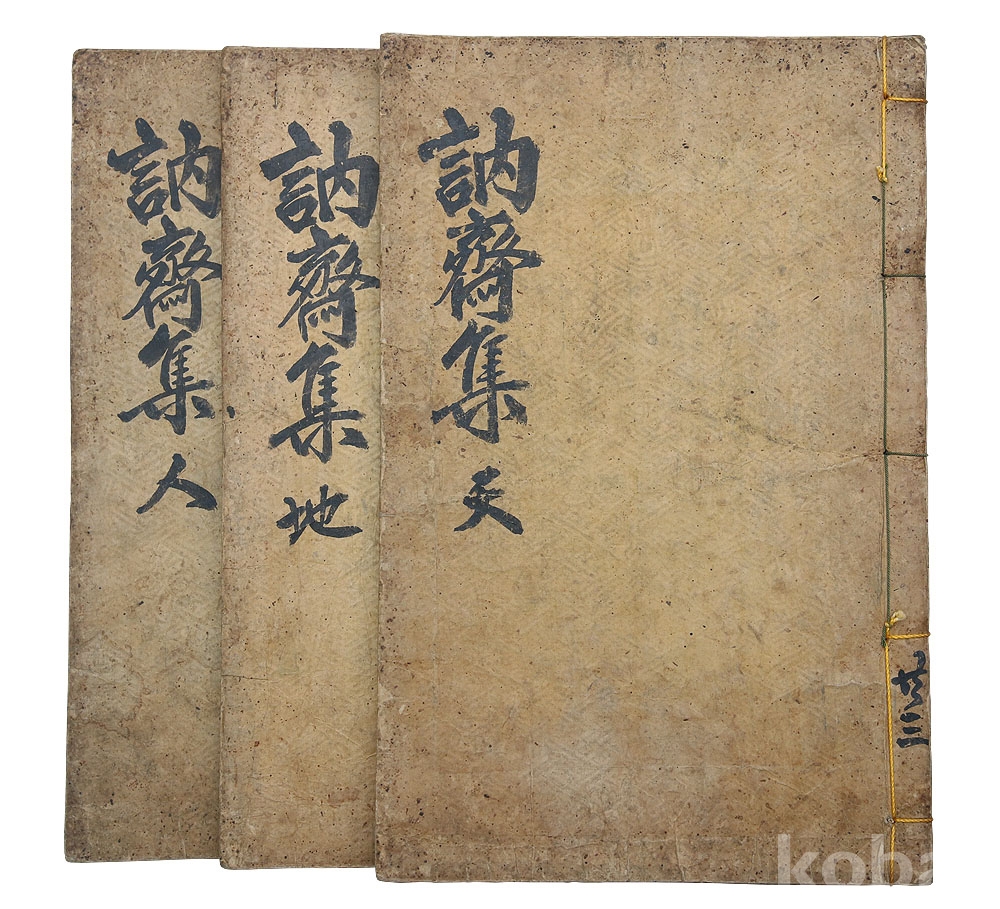 訥齋集 天
共三
訥齋集 地
訥齋集 人
koba